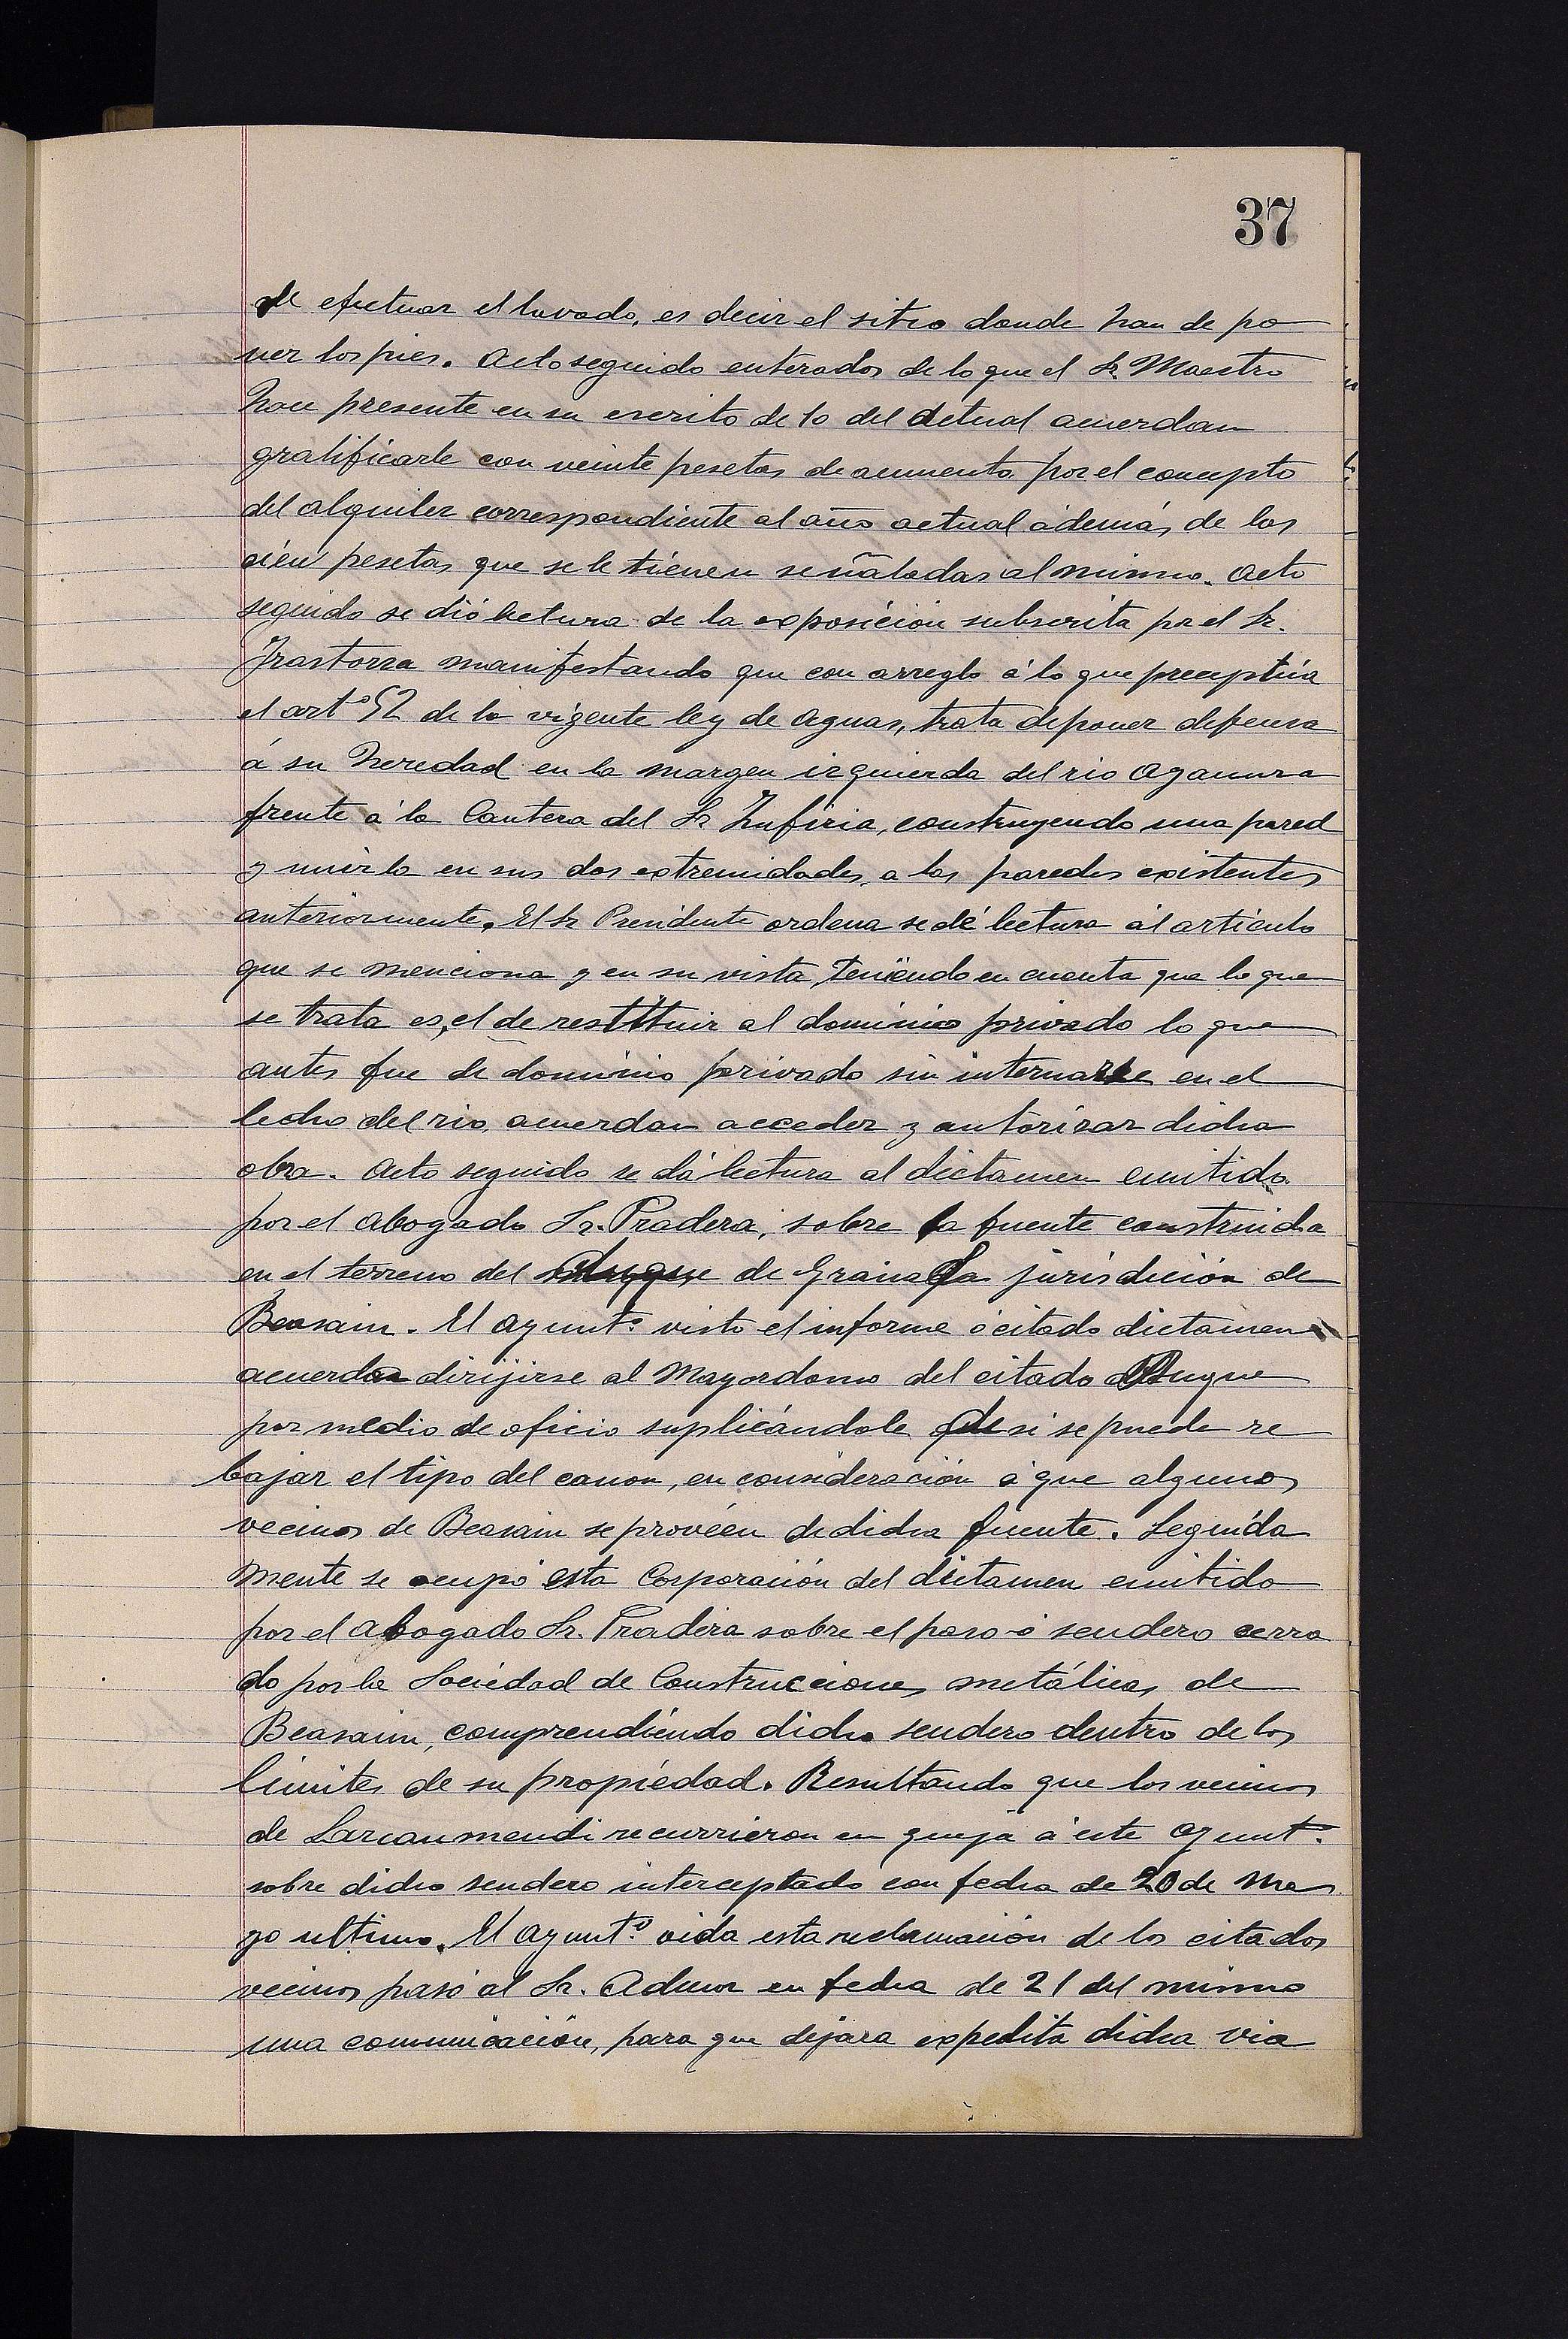 37
de efectuar el lavado, es decir el sitio donde han de po
ner los pies. Acto seguido enterados de lo que el Sr. Maestro
hace presente en su escrito de 10 del actual acuerdan
gratificarle con veinte pesetas de aumento por el concepto
del alquiler correspondiente al año actual además de las
cien pesetas que se le tienen señaladas al mismo. Acto
seguido se dió lectura de la exposición subscrita por el Sr.
Irastorza manifestando que con arreglo á lo que preceptúa
el artº 52 de la vigente ley de Aguas, trata de poner defensa
á su heredad en la margen izquierda del rio Agaunza
frente á la Cantera del Sr Zufiria, construyendo una pared
y unirla en sus dos extremidades, a las paredes existentes
anteriormente. El Sr Presidente ordena se dé lectura al articulo
que se menciona y en su vista, teniendo en cuenta que lo que
se trata es, el de restituir al dominio privado lo que
antes fue de dominio privado sin internarse en el
lecho del rio, acuerdan acceder y autorizar dicha
obra. Acto seguido se dá lectura al dictamen emitido
por el Abogado Sr. Pradera, sobre la fuente construida
en el terreno del Duque de Granada jurisdición de
Beasain. El Ayuntº visto el informe ó citado dictamen
acuerdan dirijirse al Mayordomo del citado Duque
por medio de oficio suplicándole de si se puede re
bajar el tipo del canon, en consideración á que algunos
vecinos de Beasain se provéen de dicha fuente. Seguida
mente se ocupó esta Corporación del dictamen emitido
por el Abogado Sr. Pradera sobre el paso ó sendero cerra
do por la Sociedad de Construcciones metálicas de
Beasain, comprendiéndo dicho sendero dentro de los
limites de su propiedad. Resultando que los vecinos
de Larcaumendi recurrieron en queja á este Ayuntº
sobre dicho sendero interceptado con fecha de 20 de Ma
yo ultimo. El Ayuntº oida esta reclamación de los citados
vecinos pasó al Sr. Admor en fecha de 21 del mismo
una comunicación, para que dejara expedita dicha via